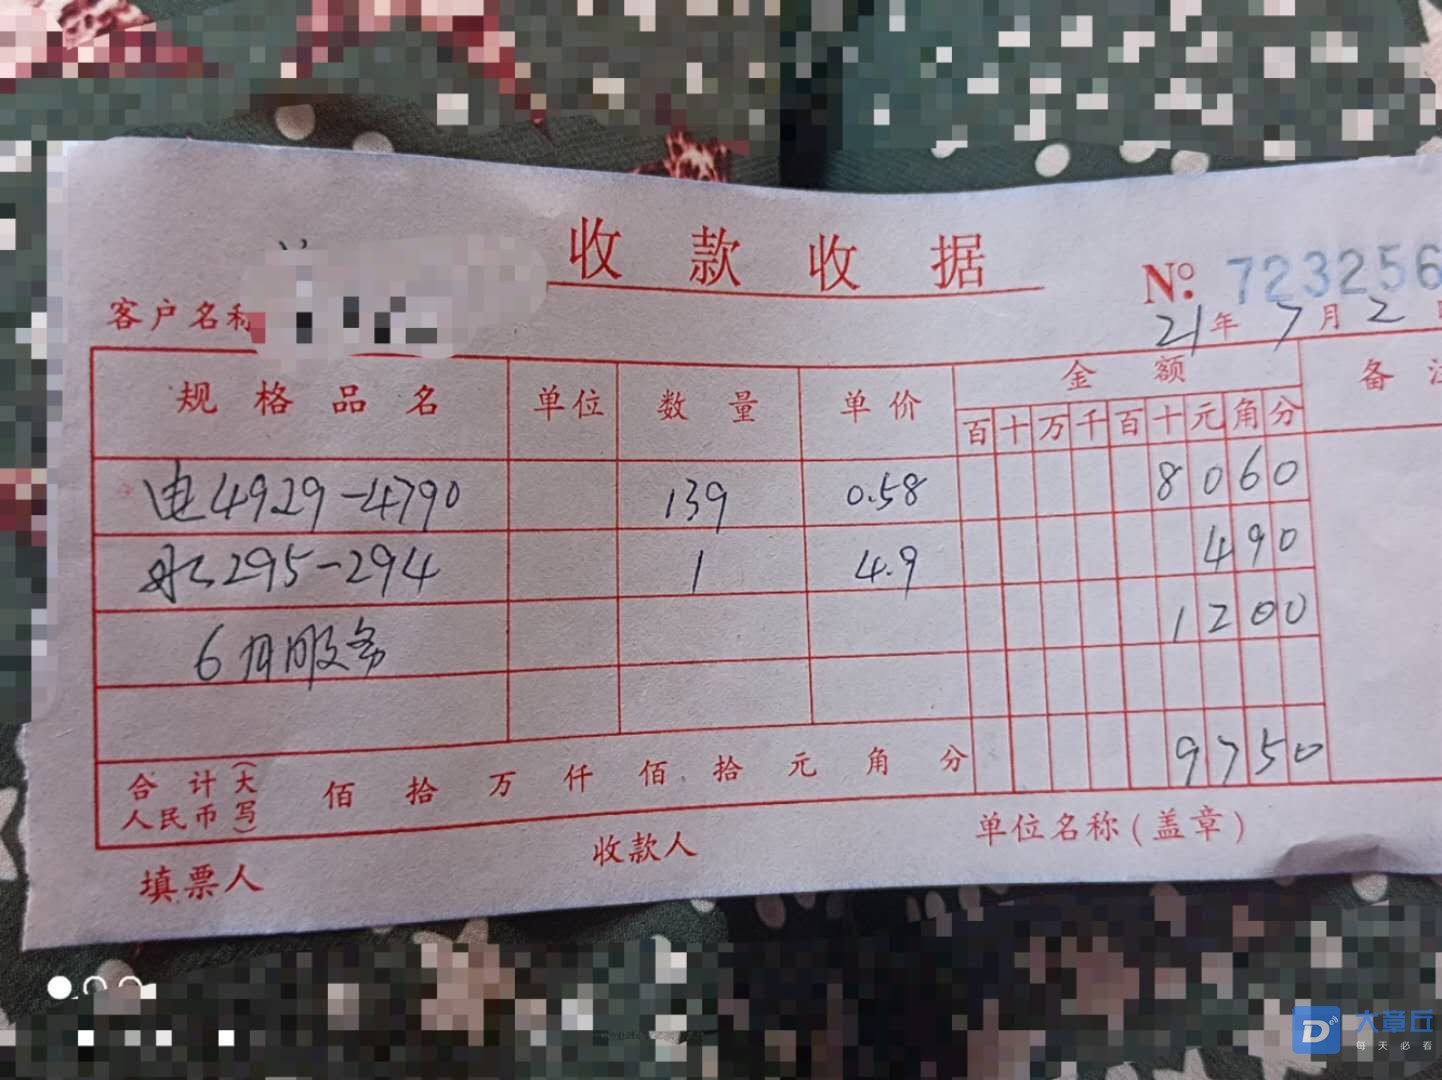 收款收据
№: 723256
客户名称
21年7月2日
规格品名 单位 数量 单价 金额 备注
百十万千百十元角分
电4929-4790 139 0.58 8060
水295-294 1 4.9 490
6月服务 1200
合计(大写)人民币 佰 拾 万 仟 佰 拾 元 角 分 9750
填票人 收款人 单位名称(盖章)
大章丘
每天必看